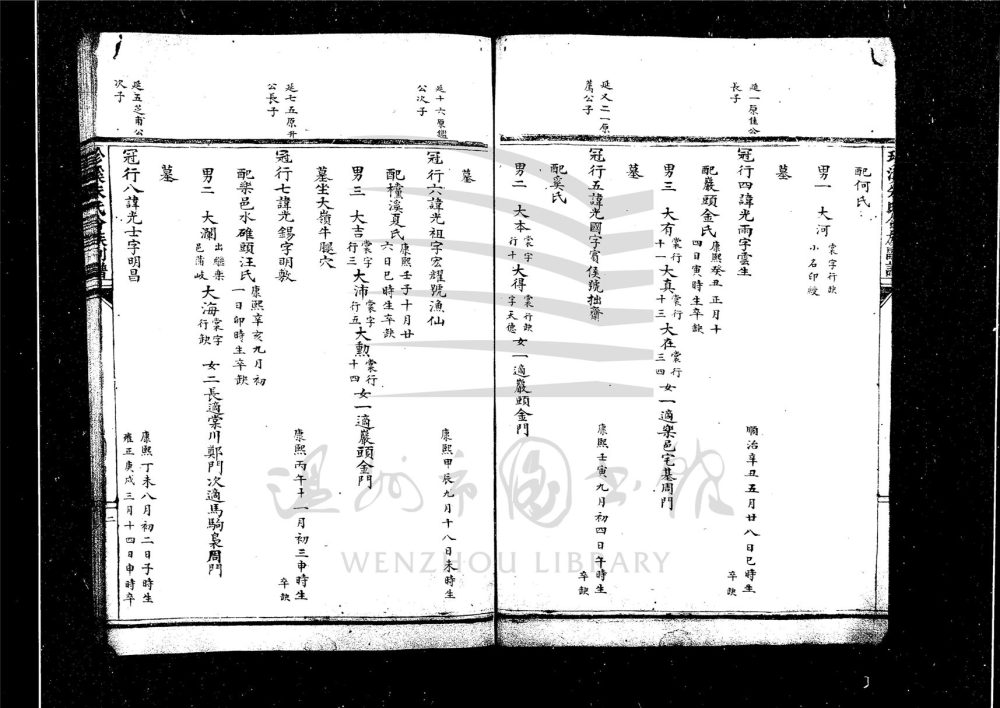 配何氏
男一 大河 裳字行缺 小名印崚
墓
延一原佳公長子
冠行四諱光兩字雲生 順治辛丑五月廿八日巳時生 卒缺
配嚴頭金氏 康熙癸丑正月十四日寅時生卒缺
男三 大有 裳行十一 大真 裳行十三 大在 裳行三四 女一適樂邑宅基周門
墓
延又二一原 公子
冠行五諱光國字賓侯號拙齋 康熙壬寅九月初四日午時生 卒缺
配奚氏
男二 大本 裳字行十 大得 裳行缺字天德 女一適嚴頭金門
墓
延十六原 公次子
冠行六諱光祖字宏耀號漁仙 康熙甲辰九月十八日未時生
配檯溪夏氏 康熙壬子十月廿六日巳時生卒缺
男三 大吉 裳字行三 大沛 裳字行五 大勲 裳行十四 女一適嚴頭金門
墓坐大嶺牛腿穴
延七五原升公長子
冠行七諱光錫字明敦 康熙丙午十一月初三申時生 卒缺
配樂邑水碓頭汪氏 康熙辛亥九月初一日卯時生卒缺
男二 大瀾 出繼樂邑蒲岐 大海 裳字行缺 女二長適棠川鄭門次適馬騎梟周門
墓
延五芝甫公次子
冠行八諱光士字明昌 康熙丁未八月初二日子時生 雍正庚戌三月十四日申時卒
二
WENZHOU LIBRARY